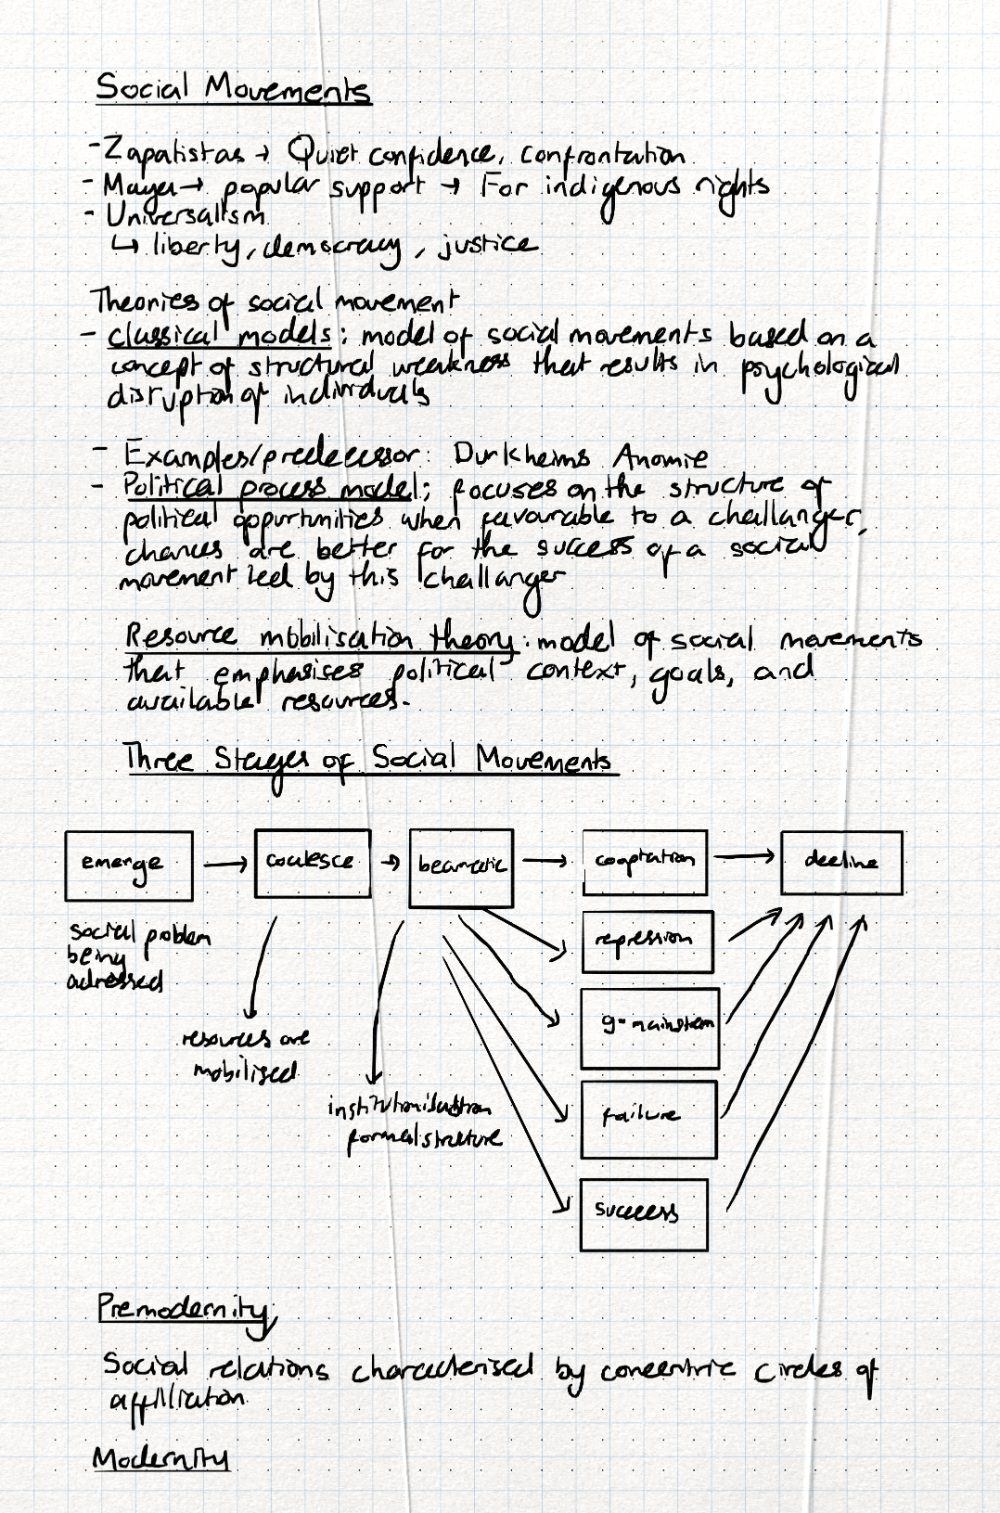 Social Movements
- Zapatistas → Quiet confidence, confrontation
- Mayer → popular support → For indigenous rights
- Universalism
↳ liberty, democracy, justice
Theories of social movement
- classical models: model of social movements based on a
concept of structural weakness that results in psychological
disruption of individuals
- Examples/predecessor: Durkheims Anomie
- Political process model; focuses on the structure of
political oppurtunities when favourable to a challanger,
chances are better for the success of a social
movement led by this challanger
Resource mobilisation theory: model of social movements
that emphasises political context, goals, and
available resources.
Three Stages of Social Movements
emerge → coalesce → → cooptation → decline
social problem
being
adressed
repression
resources are
mobilised
g-mainstream
institutionilisation
formal structure
failure
success
Premodernity
Social relations characterised by concentric circles of
affiliation
Modernity